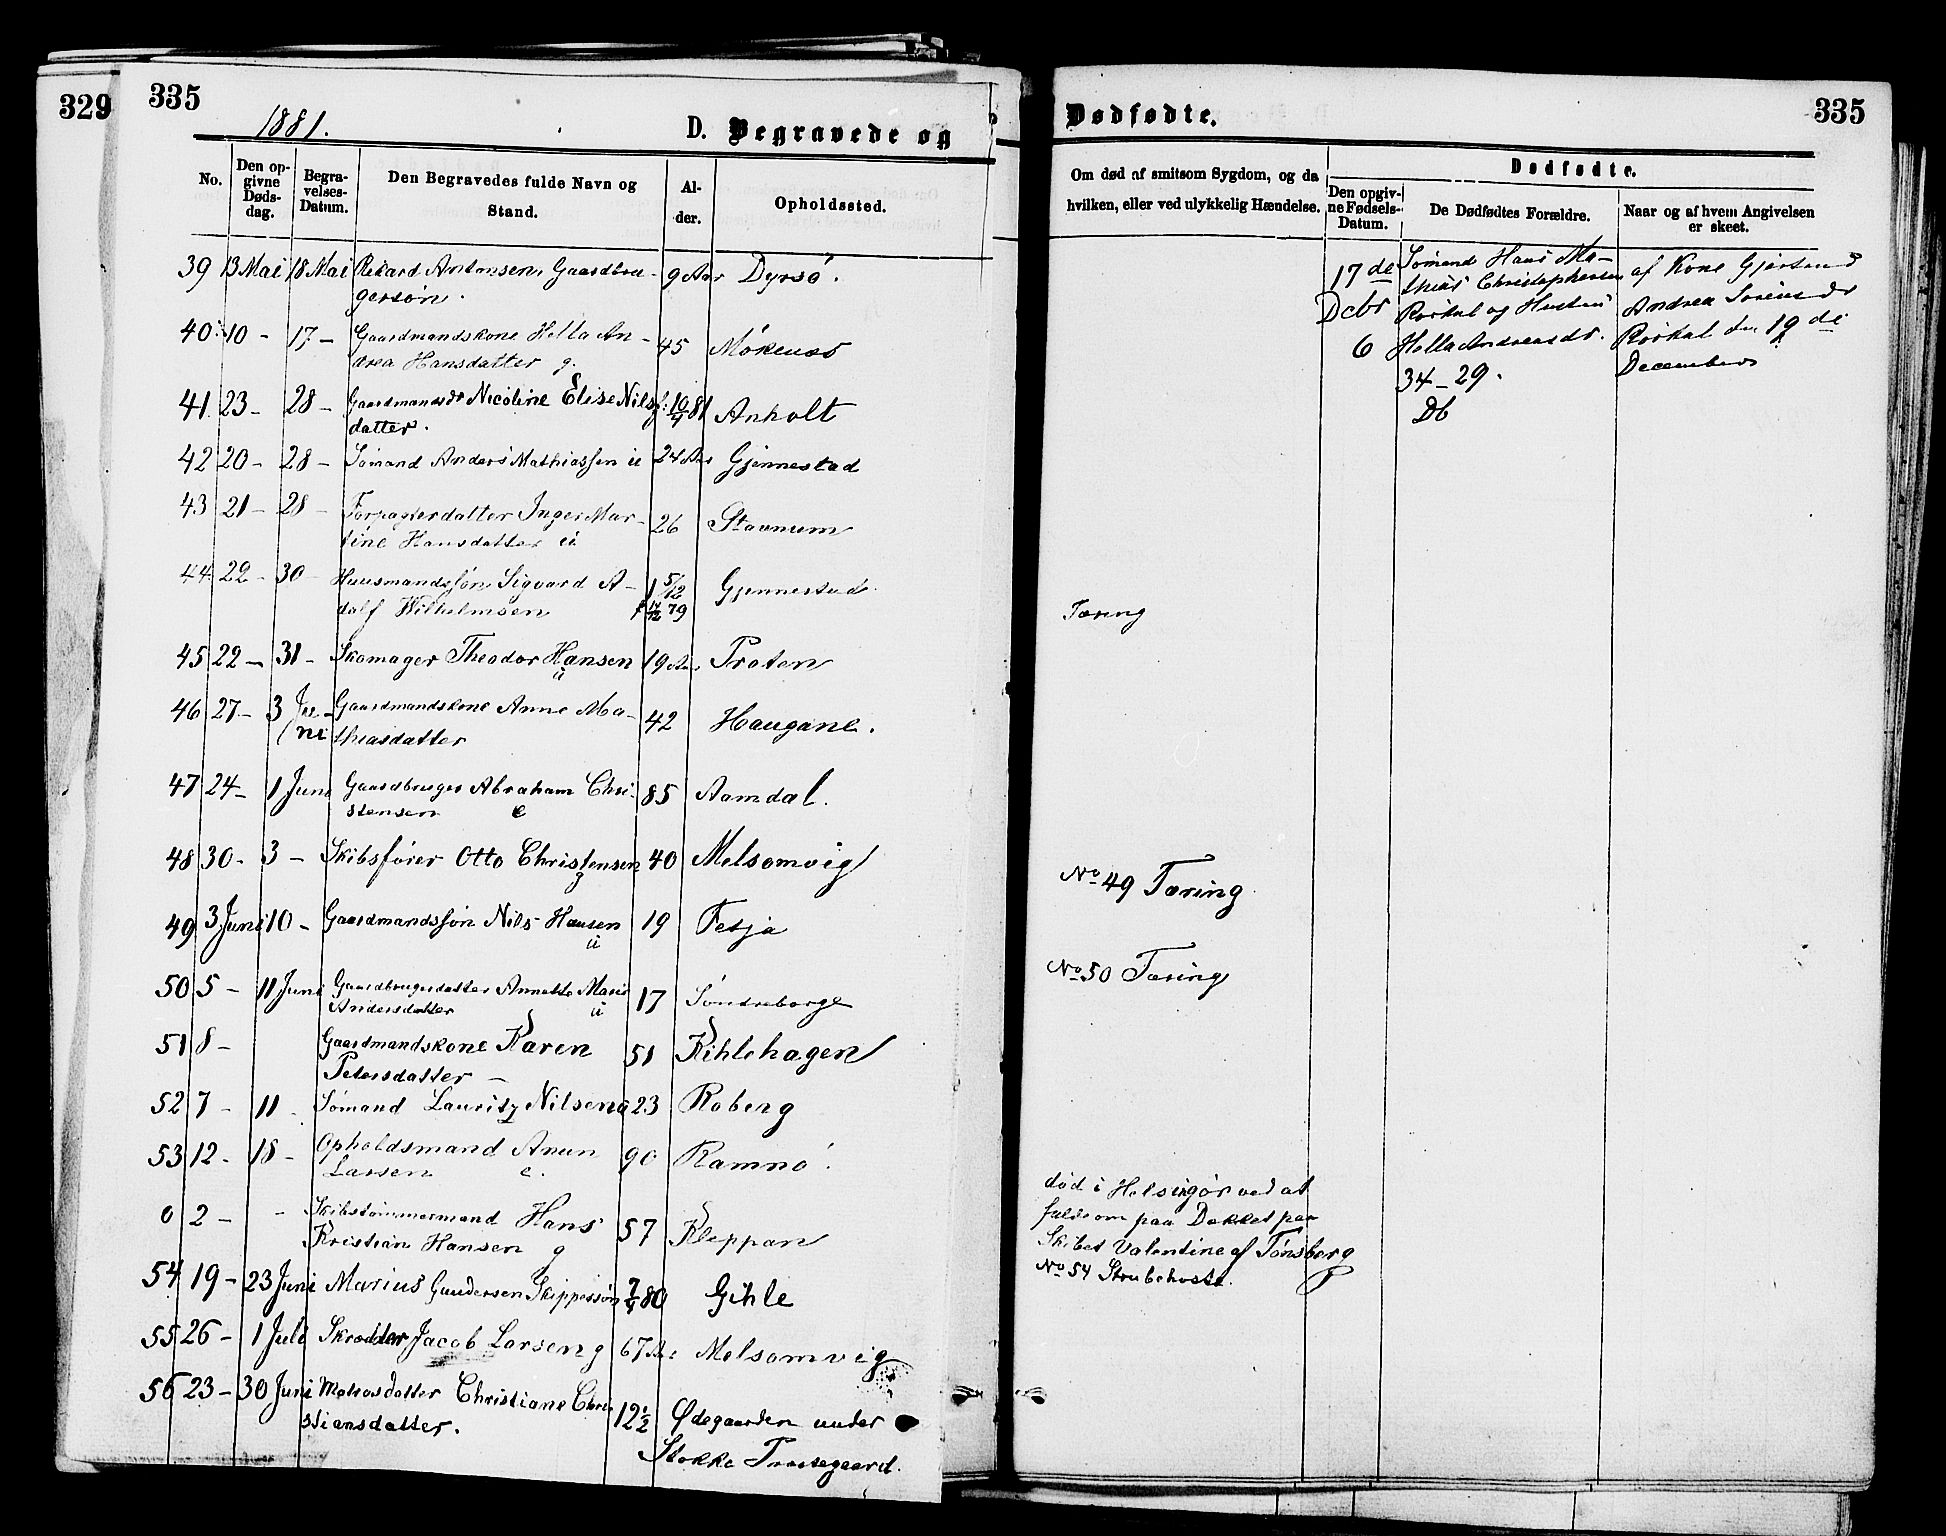 329
335
1881.
D. Begravede og
No.
Den op-
givne
Døds-
dag.
Begra-
velses-
Datum.
Den Begravedes fulde Navn og
Stand.
Al-
der.
Opholdssted.
39 13 Mai 18 Mai Rikard Antonsen, Gaardbru- 9 Aar Dyrsø.
gersøn.
40 10 - 17 - Gaardmandskone Hella An- 45
drea Hansdatter g.
41 23 - 28 - Gaardmandsdr Nicoline Elise Nils f. 10/4 81 Anholt
datter.
42 20 - 28 - Sömand Anders Mathiassen u 24 Aar Gjennestad
43 21 - 28 - Forpagterdatter Inger Mar- 26 Stavnum
tine Hansdatter u
44 22 - 30 - Huusmandssøn Sigvard A- 1 5/12 Gjennestad.
dolf Wilhelmsen f 14/12 79
45 22 - 31 - Skomager Theodor Hansen 19 Aar Proten
u
46 27 - 3 Ju- Gaardmandskone Anne Ma- 42 Haugane.
ni thiasdatter
47 24 - 1 Juni Gaardbruger Abraham Chri- 85 Aamdal.
stensen e
48 30 - 3 - Skibsfører Otto Christensen 40 Melsomvig
g
49 3 Juni 10 - Gaardmandssøn Nils Hansen 19 Fetja
u
50 5 - 11 Juni Gaardbrugerdatter Annette Marie 17 Søndreborge
Andersdatter u
51 8 - Gaardmandskone Karen 51 Kihlehagen
Petersdatter -
52 7 - 11 - Sømand Lauritz Nilsen u 23 Roberg
53 12 - 18 - Opholdsmand Anun 90 Ramnø.
Larsen e.
0 2 - - Skibstømmermand Hans 57 Kleppan
Kristian Hansen g
54 19 - 23 Juni Marius Gundersen Skippersøn 7/4 80 Gihle
55 26 - 1 Juli Skrædder Jacob Larsen g 67 Aar Melsomvig
56 23 - 30 Juni Matrosdatter Christiane Chri- 12 1/2 Ødegaarden under
stiansdatter.
Stokke Præstegaard.
Dødfødte.
335
Om død af smitsom Sygdom, og da
hvilken, eller ved ulykkelig Hændelse.
Dødfødte.
Den opgiv-
ne Fødsels-
Datum.
De Dødfødtes Forældre.
Naar og af hvem Angivelsen
er skeet.
17 de Sømand Hans Ma- af Kone Gjertrud
thias Christophersen
Dcbr Rørkul og Hustru Andrea Sørensdr
6 Hella Andreasdr. Rørkul den 19 de
34 - 29. December
Db
Tæring
No 49 Tæring
No 50 Tæring
død i Helsingør ved at
falde om paa Dækket paa
Skibet Valentine af Tønsberg
No 54 Strubehoste.